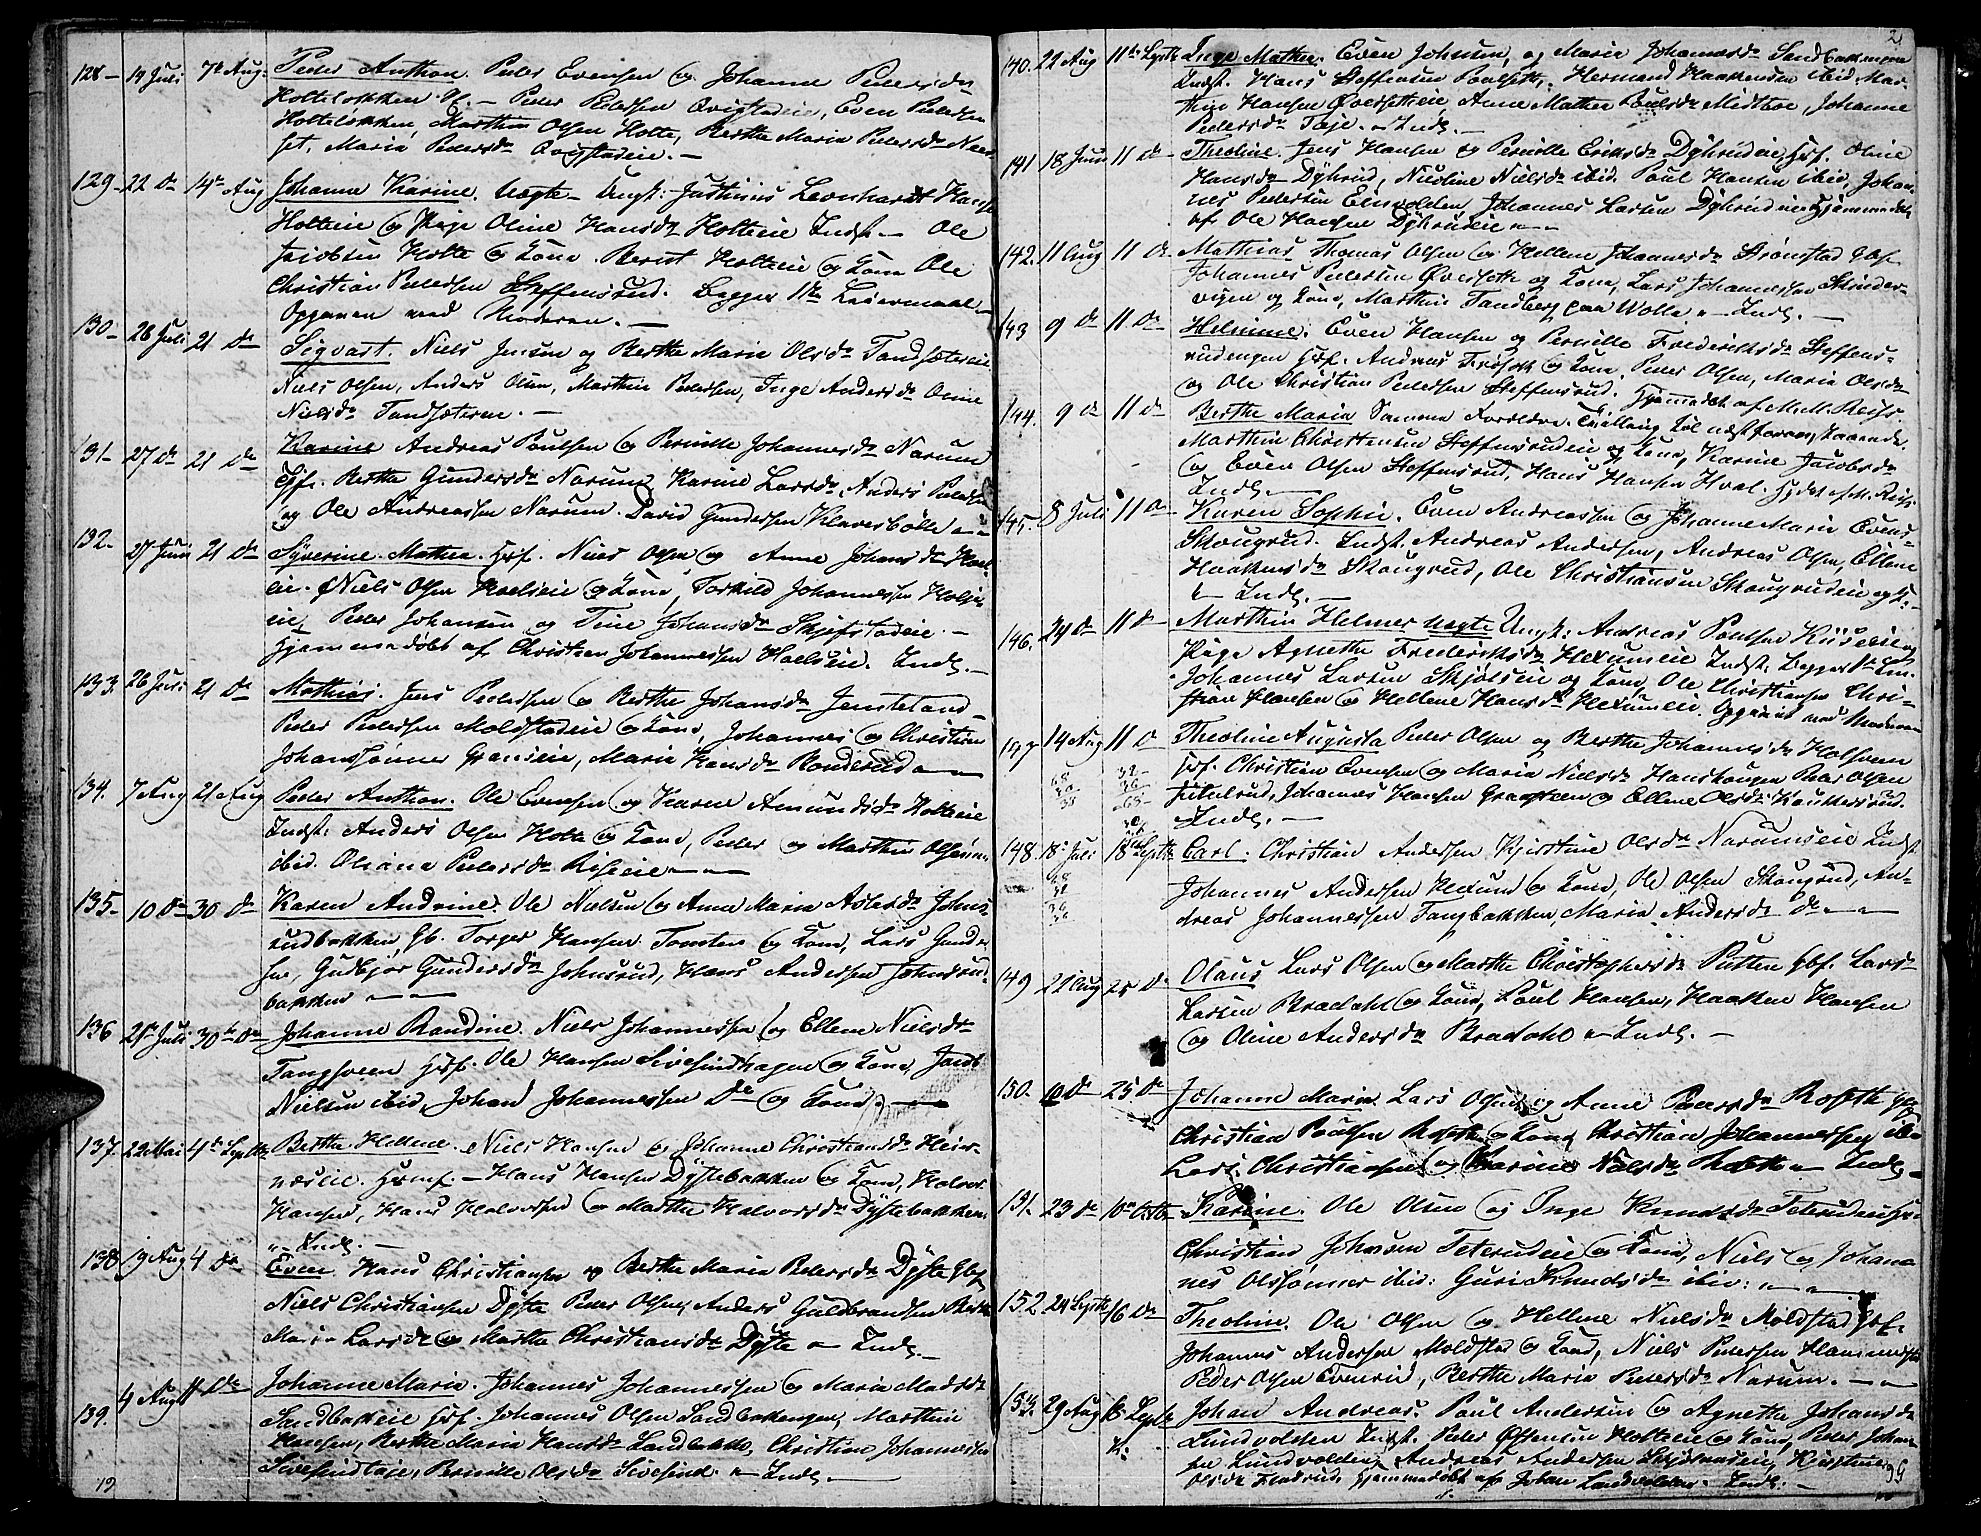 128- 19 Juli 7de Aug. Peder Anthon. Peder Evensen og Johanne Pedersdr
Holteløkken Gf. - Peder Pedersen Qvistadeie, Even Pedersen
Holteløkken, Marthin Olsen Holte, Berthe Maria Pedersdr Næs-
set, Maria Pedersdr Qvistadeie. -
129- 22 do 14de Aug Johanne Karine. Uægte - Ungk: Justinius Leonhardt Hans
Holteie og Pige Oline Hansdr Holteie Indst. - Ole
Jacobsen Holte og Kone. Berent Holteie og Kone Ole
Christian Pedersen Steffensrud. Begges 1ste Leiermaal -
Opgiven ved Moderen. -
130- 28 Juli 21 do Sigvart. Niels Jensen og Berthe Maria Olsdr Tandsætereie
Niels Olsen, Anders Olsen, Marthin Pedersen, Inge Andersdr Oline
Nielsdr Tandsæterne. -
131- 27 do 21 do Karine Andreas Poulsen og Pernille Johannesdr Narum
Gf. Berthe Gundersdr Narum, Karine Larsdr, Anders Pedersen
og Ole Andreassen Narum. David Gundersen Klaresbølle
132- 27 Juni 21 do Syverine Mathea. Hjf. Niels Olsen og Anne Johansdr Hoels-
eie. Niels Olsen Hoelseie og Kone, Torkild Johannessen Holsei
eie, Peder Johansen og Tine Johansdr Skjefstadeie. -
Hjemmedøbt af Christian Johannessen Hoelseie. Inds. -
133. 26 Juli 21 do Mathias. Jens Pedersen og Berthe Johansdr Jemteland -
Peder Pedersen Moldstadeie og Kone, Johannes og Christian
Johanssønner Granseie, Maria Hansdr Ronderud
134. 7 Aug 21 Aug Peder Anthon. Ole Evensen og Karen Amundsdr Holteie
Indst: Anders Olsen Holte og Kone, Peder og Marthin Olsønner
ibid. Oliana Pedersdr Roseie
135- 10 do 30 do Karen Andrine. Ole Nielsen og Anne Maria Aslesdr Johns-
rudbakken Gb. Torger Hansen Tomsten og Kone, Lars Gunder-
sen, Gudbjør Gundersdr Johnsrud, Hans Andersen Johnsrud-
bakken
136 21de Juli 30te do Johanne Randine. Niels Johannessen og Ellene Nielsdr
Tangsveen Hjf. Ole Hansen Sivesindhagen og Kone, Jacob
Nielsen ibid, Johan Johannessen do og Kone. -
137. 22 Mai 4de Septb Berthe Hellene. Niels Hansen og Johanne Christiansdr Heier-
næseie. Hjmf. - Hans Hansen Dystebakken og Kone, Halvor
Hansen, Hans Halvorsen og Marthe Halvorsdr Dystebakken
- Inds. -
138 19 Aug 4 do Even. Hans Christiansen og Berthe Maria Pedersdr Dyste Gbf
Niels Christiansen Dyste Peder Olsen, Anders Guldbrandsen Berthe
Maria Larsdr og Marthe Christiansdr Dyste - Inds. -
139. 4 Aug 11 do Johanne Maria. Johannes Johannessen og Maria Madsdr
Sandbakeie Hjf. Johannes Olsen Sandbakengen, Marthin
Hansen, Berthe Maria Hansdr Sandbakk, Christian Johannessen
Sivesindteie, Pernille Olsdr Sivesind. - Inds. -
19
2
140. 22 Aug 11te Septb Inge Mathea. Even Johnsen, og Maria Johannesdr Sandbakmoen
Indst. Hans Steffensen Poulseth, Hermand Haakensen ibid. Mar-
thin Hansen Øversetteie, Anne Mathea Poulsdr Midtbøe, Johanne
Pedersdr Taje. - Inds. -
141 18 Juni 11 do Theoline. Jens Hansen og Pernille Eriksdr Dyhrudeie Hjf. Oline
Hansdr Dyhrud, Nicoline Nielsdr ibid. Poul Hansen ibid, Johan-
nes Pedersen Eenvolden Johannes Larsen Dyhrudeie Hjemmedøbt
af Ole Hansen Dyhrudeie
142. 11 Aug 11 do Mathias Thomas Olsen og Hellene Johannesdr Strønstad Gbf.
Johannes Pedersen Øverseth og Kone, Lars Johannessen Skinder-
vigen og Kone, Marthin Tandberg paa Wolle - Inds. -
143 9 do 11 do Helmine. Even Hansen og Pernille Frederiksdr Steffens-
rudengen Hjf. Andreas og Kone, Peder Olsen, Maria Olsdr
og Ole Christian Pedersen Steffensrud. Hjemdøbt af M. M. Reise
144. 9 do 11 do Berthe Maria Samme Forældre. Tvilling til næst foran, Faaende
Marthin Christensen Steffensrudeie og Kone, Karine Jacobsdr
og Even Olsen Steffensrud, Hans Hansen Hval. Hjdøbt af M. Reise
Inds. -
145. 8 Juli 11 do Karen Sophie. Even Andreassen og Johanne Maria Evens-
Skougrud. Indst. Andreas Andersen, Andreas Olsen, Ellene
Haakensdr Skougrud, Ole Christiansen Skougrudeie og K. -
- Inds. -
146. 24 do 11 do Marthin Helmer uægte Ungk: Andreas Poulsen Kiiseeie og
Pige Agnethe Frederiksdr Hexumeie Indst. Begges 1ste Lm.
Johannes Larsen Skjølseie og Kone, Ole Christiansen Chri-
stian Hansen og Hellene Hansdr Hexumeie. Opgivet ved Moderen
147 14 Aug 11 do Theoline Augusta Peder Olsen og Berthe Johannesdr Holsveen
Hjf. Christian Evensen og Maria Nielsdr Hanshaugen Peder Olsen
Jutulrud, Johannes Hansen Graasteen og Ellene Olsdr Kankerud.
- Inds. -
148. 18 Juli 18 Septb Carl. Christian Andersen Kjirstine Olsdr Narumseie Indst
Johannes Andersen Hexum og Kone, Ole Olsen Skougrud, An-
dreas Johannessen Tangbakken, Maria Andersdr do
149 22 Aug 25 do Olaus Lars Olsen og Marthe Christophersdr Putten Gbf. Lars
Larsen Bradahl og Kone, Poul Hansen, Haaken Hansen
og Oline Andersdr Bradahl - Inds. -
150. 10 do 25 do Johanne Maria. Lars Olsen og Anne Pedersdr Roseth Hjf
Christian Poulsen Roseth og Kone Christian Johannessen ibid
Lars Christiansen og Karine Nielsdr Roseth - Inds. -
151. 23 do 10de Octb Karine. Ole Olsen og Inge Knudsdr Teterudeie Hjf
Christian Johansen Teterudeie og Kone, Niels og Johan-
nes Olssønner ibid: Guri Knudsdr ibid:
152. 24 Septb 16 do Theoline. Ole Olsen og Hellene Nielsdr Moldstad Hjf.
Johannes Andersen Moldstad og Kone, Niels Pedersen Hammerstad
Peder Olsen Evenrud, Berthe Maria Pedersdr Narum. -
153. 29 Aug 18 Septb Johan Andreas. Poul Andersen og Agnethe Johansdr
Lundvolden Indst. Peder Olsen Holteie og Kone, Peder Johan-
sen Lundvolden, Andreas Andersen, Kjirstine
Olsdr Hjemmedøbt af Johan Lundvolden. Inds. -
99